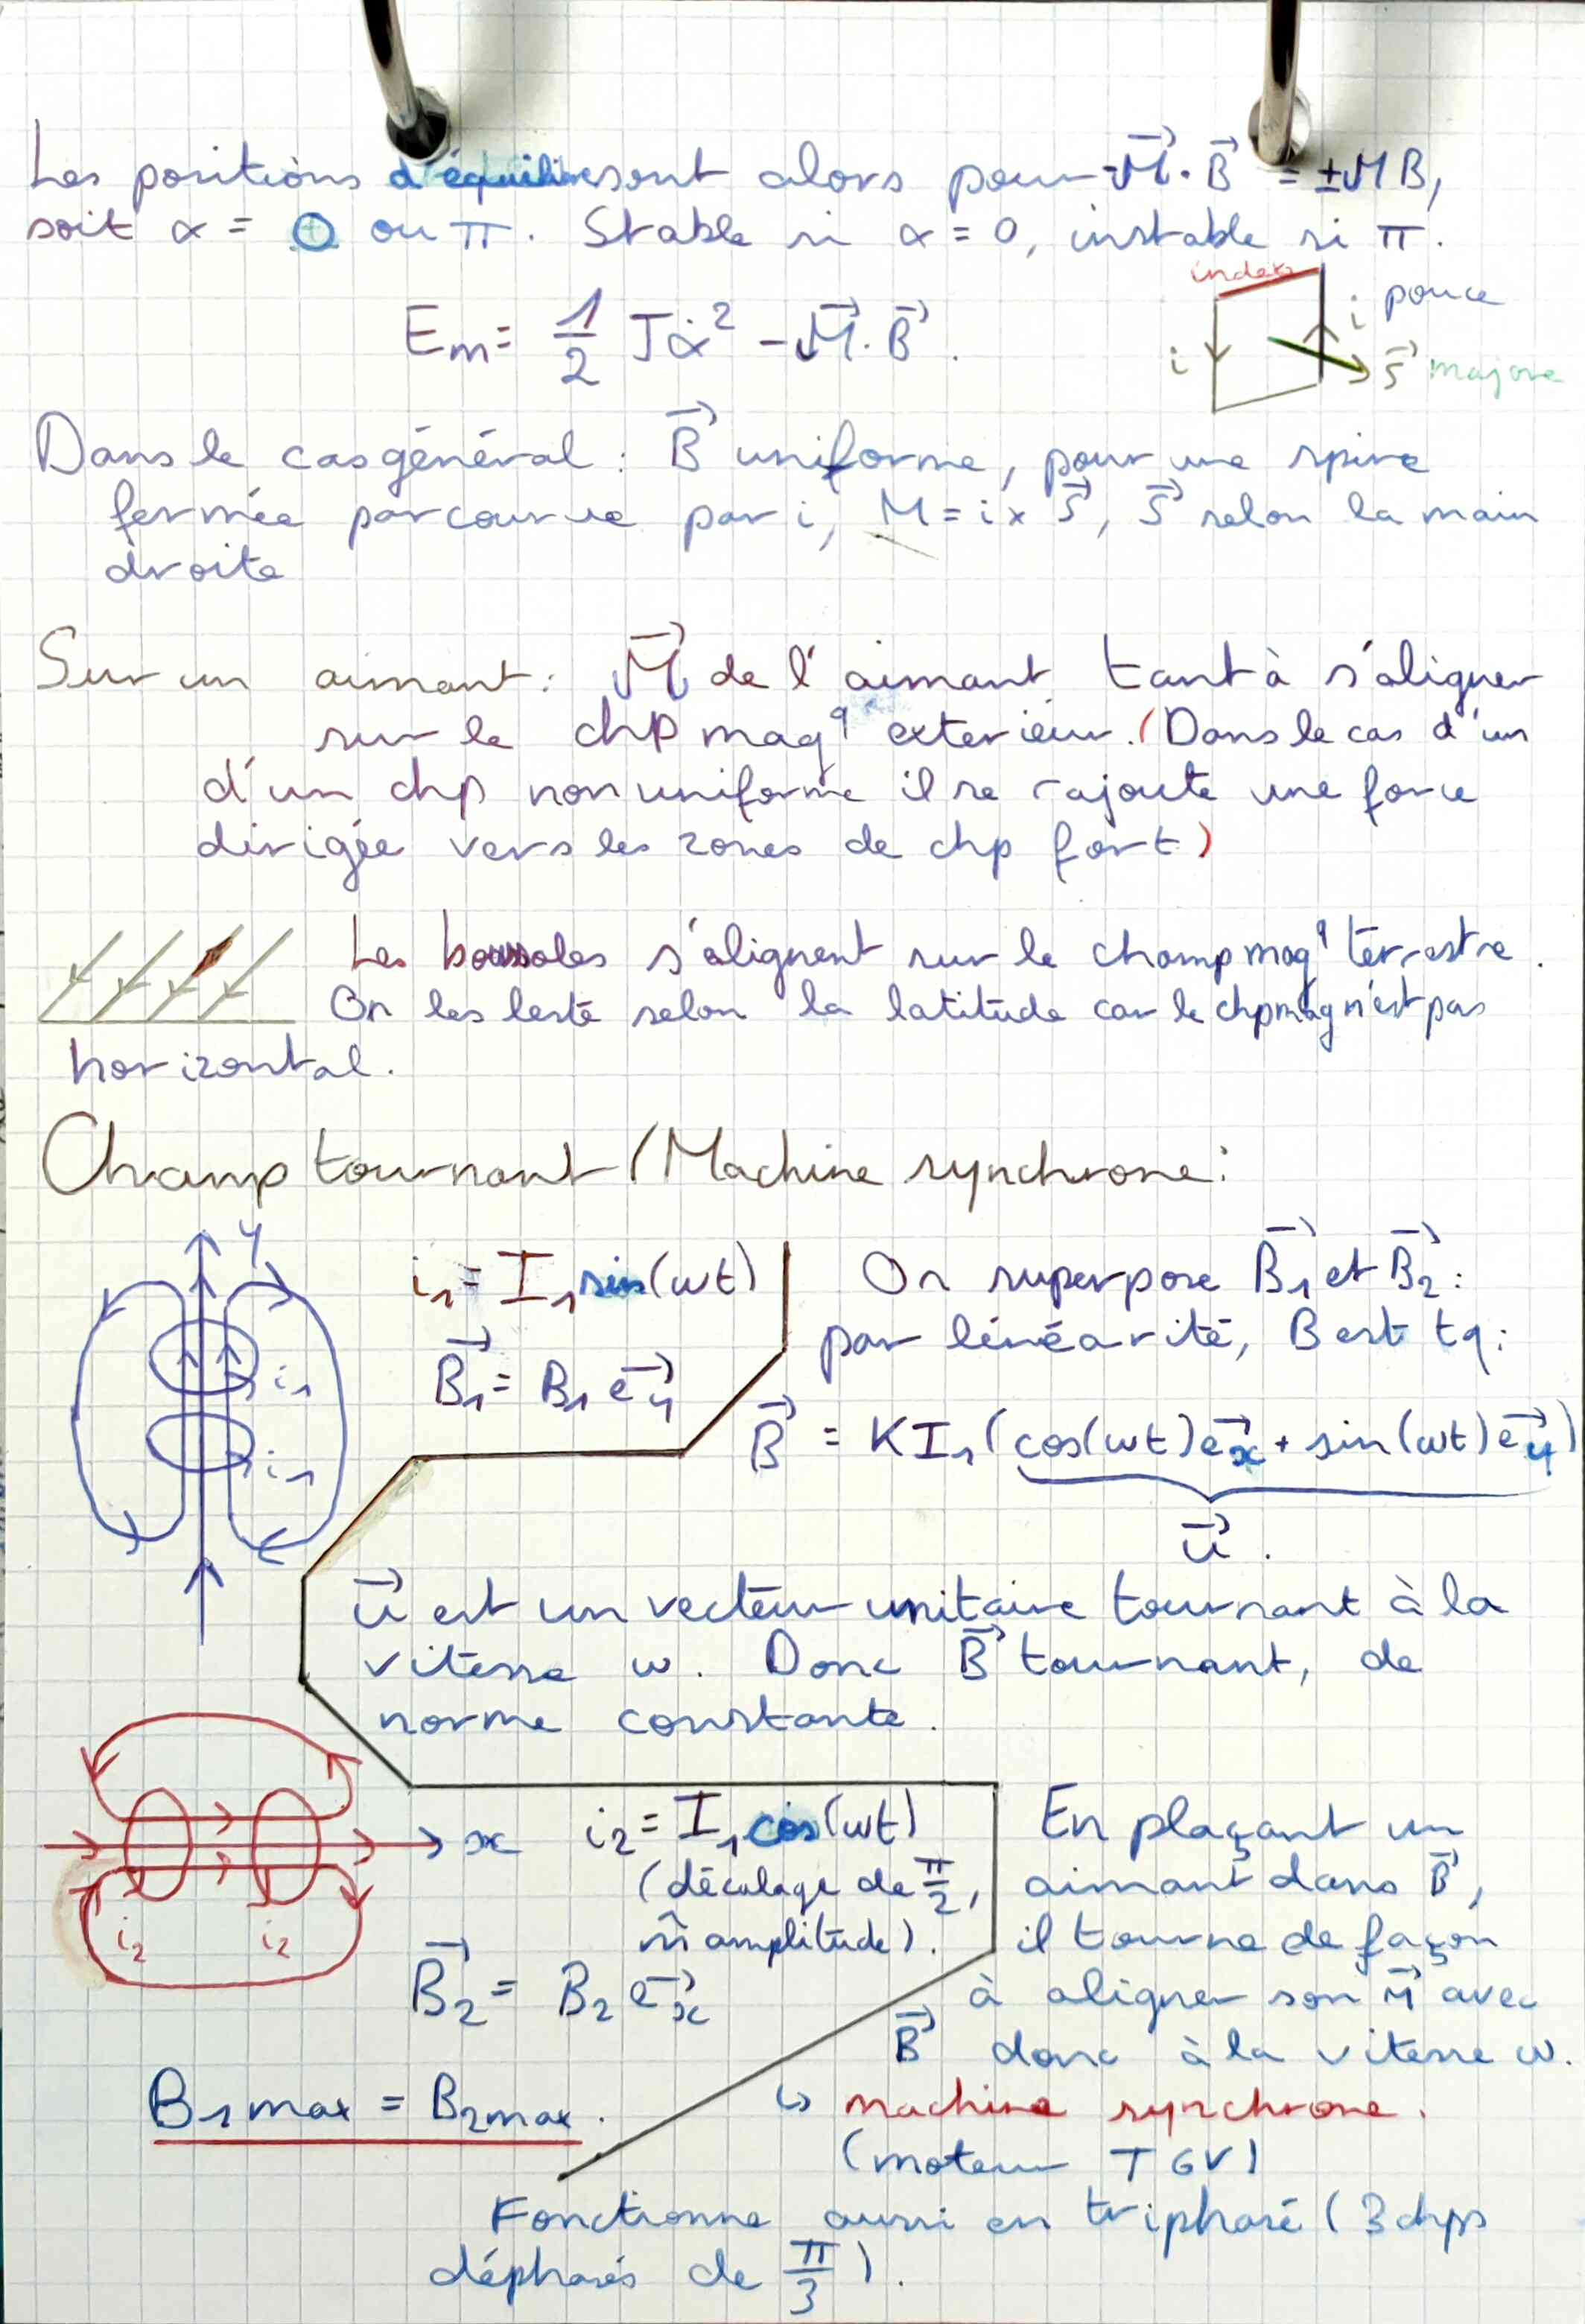 Les positions d'équilibre sont alors pour -M⃗·B⃗ = ±MB,
soit α = 0 ou π. Stable si α = 0, instable si π.
index
i pouce
Em = 1/2 Jα̇² - M⃗·B⃗.
i
S⃗ majeure
Dans le cas général : B⃗ uniforme, pour une spire
fermée parcourue par i, M = i x S⃗, S⃗ selon la main
droite
Sur un aimant : M⃗ de l'aimant tant à s'aligner
sur le chp magq exterieur. (Dans le cas d'un
d'un chp non uniforme il se rajoute une force
dirigée vers les zones de chp fort)
Les boussoles s'alignent sur le champ magq terrestre.
On les leste selon la latitude car le chp mag n'est pas
horizontal.
Champ tournant (Machine synchrone :
y
i₁ = I₁ sin(ωt)
B₁⃗ = B₁ e_y⃗
i₁
i₁
On superpose B₁⃗ et B₂⃗ :
par linéarité, B est tq :
B⃗ = KI₁(cos(ωt)e_x⃗ + sin(ωt)e_y⃗)
u⃗.
u⃗ est un vecteur unitaire tournant à la
vitesse ω. Donc B⃗ tournant, de
norme constante.
x
i₂ = I₁ cos(ωt)
(décalage de π/2,
m̂ amplitude).
i₂
i₂
B₂⃗ = B₂ e_x⃗
B₁max = B₂max.
En plaçant un
aimant dans B⃗,
il tourne de façon
à aligner son M⃗ avec
B⃗ donc à la vitesse ω.
↳ machine synchrone.
(moteur TGV)
Fonctionne aussi en triphasé (3 chps
déphasés de π/3).